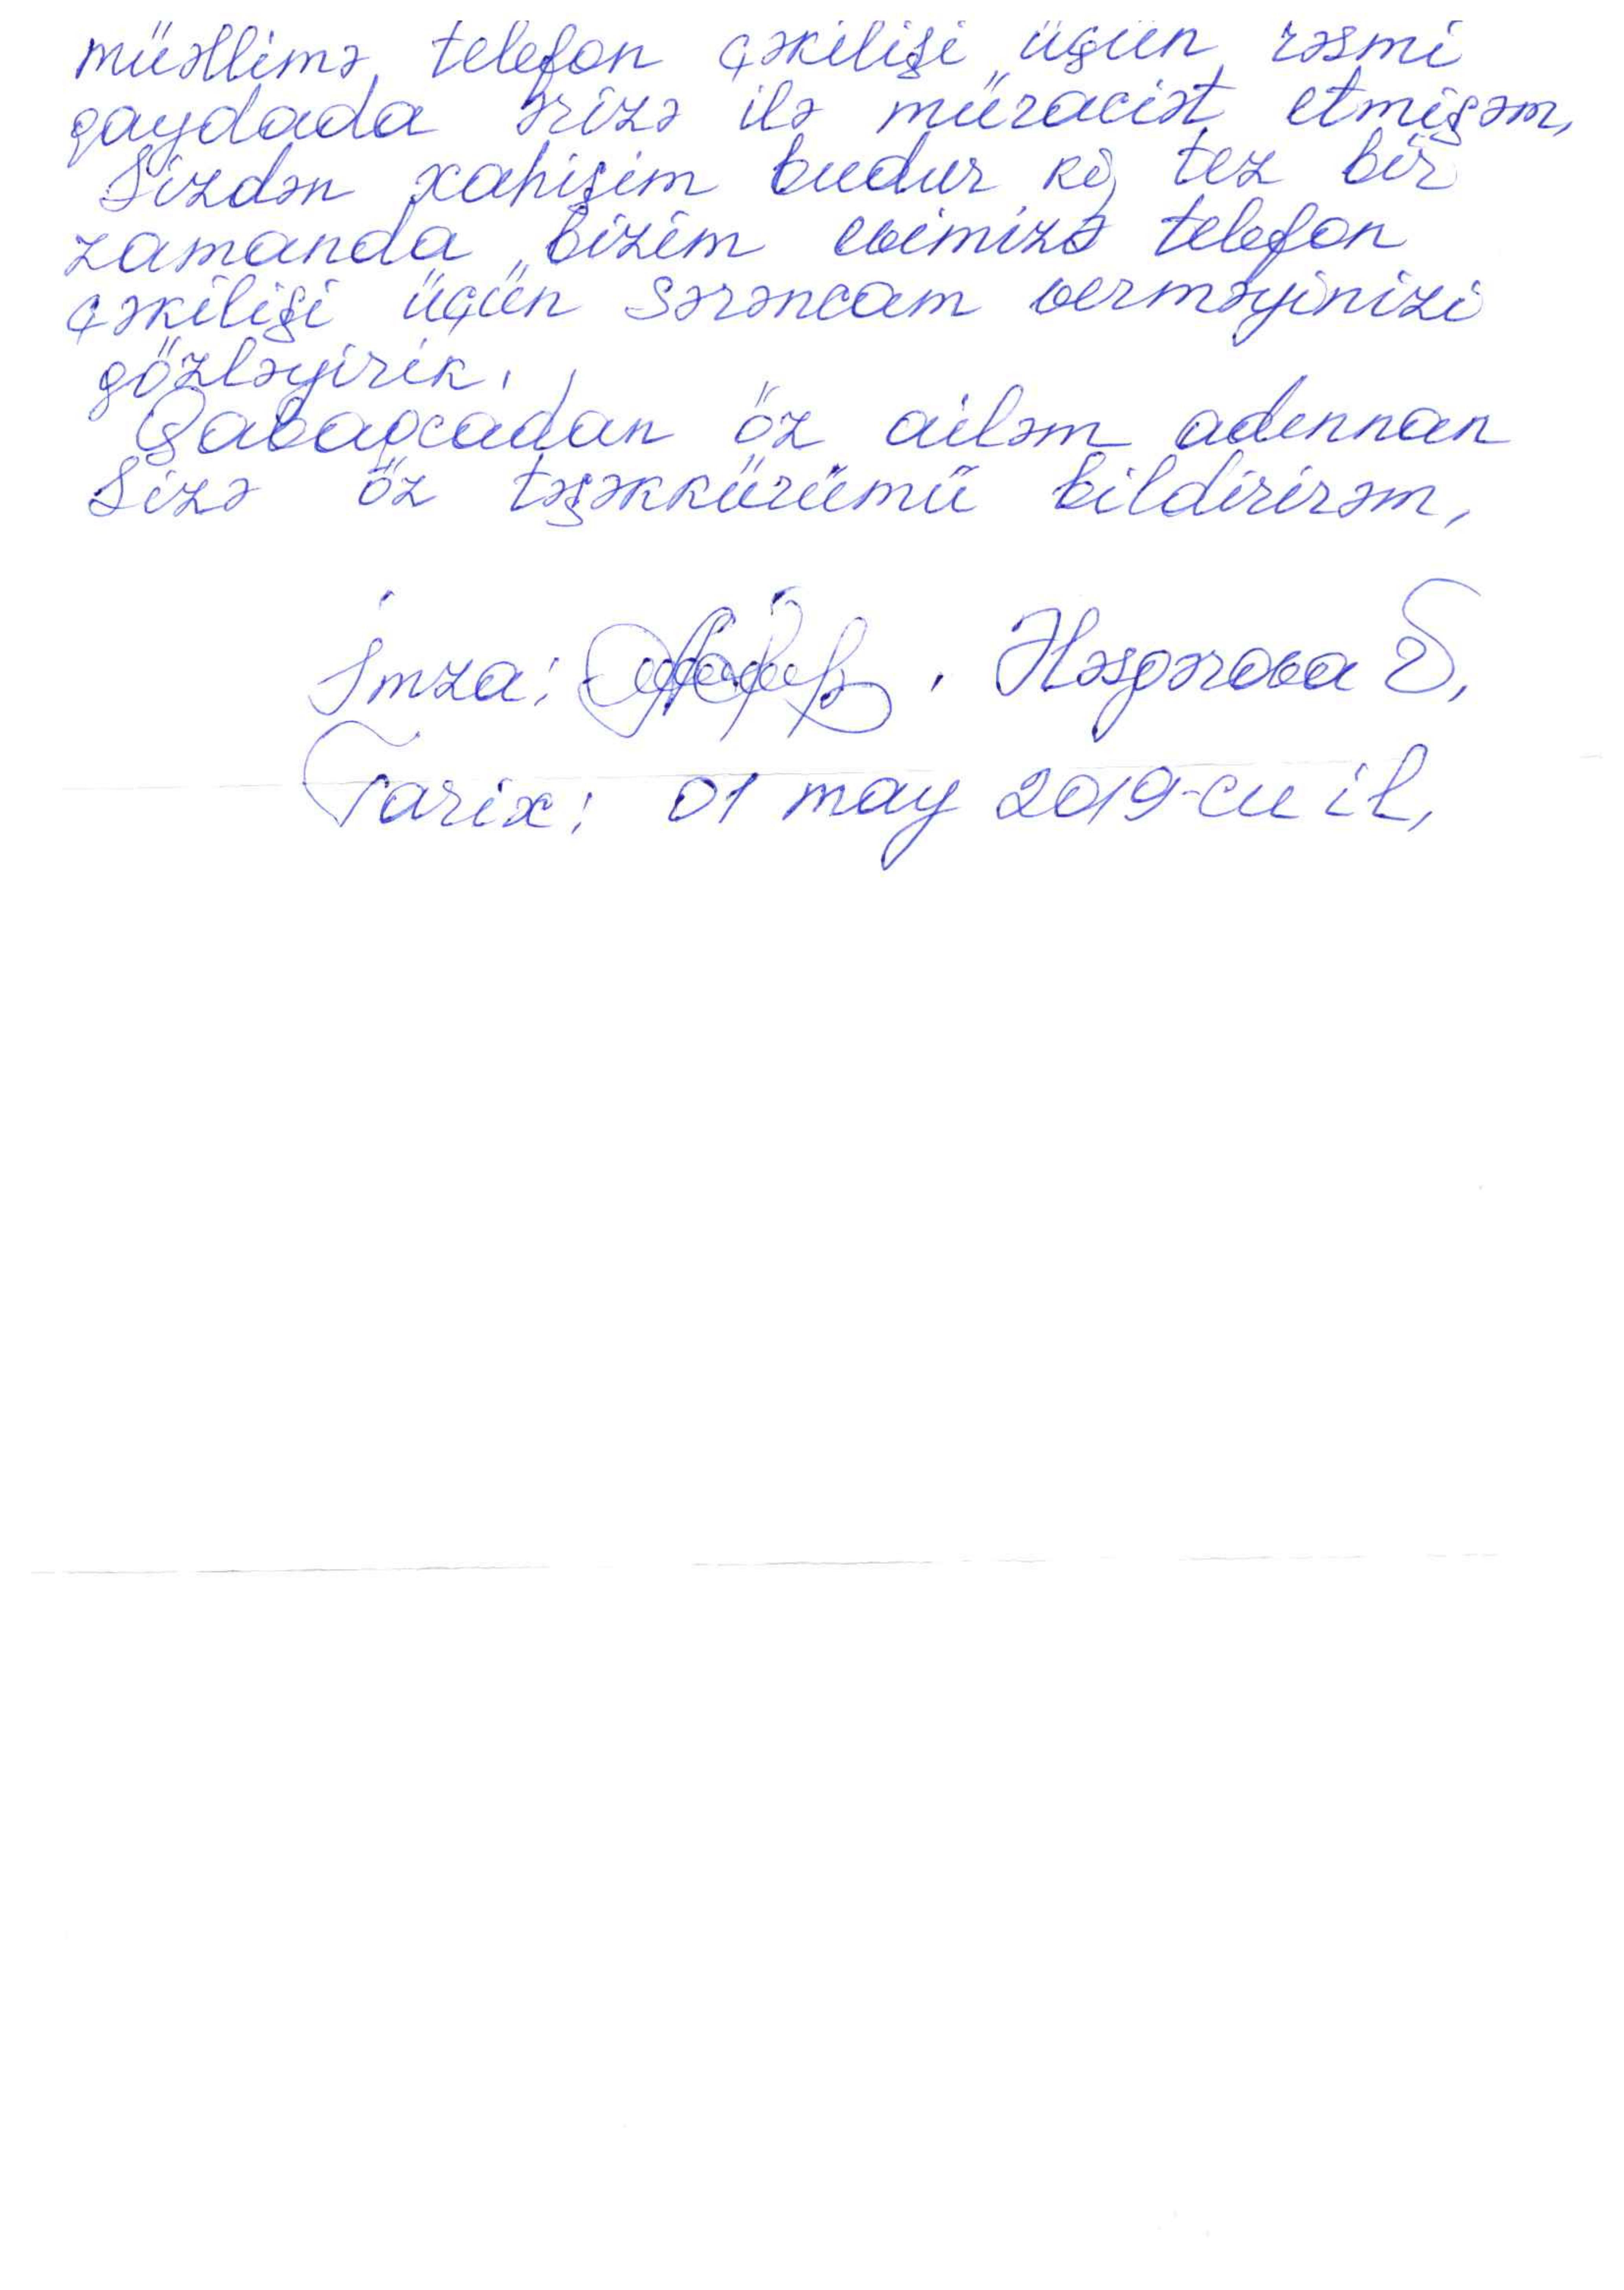 müəllimə telefon çəkilişi üçün rəsmi
qaydada ərizə ilə müraciət etmişəm,
Sizdən xahişim budur ki, tez bir
zamanda bizim evimizə telefon
çəkilişi üçün sərəncam verməyinizi
gözləyirik.
Qabaqcadan öz ailəm adınnan
Sizə öz təşəkkürümü bildirirəm,
İmza: Ələsgərova S,
Tarix: 01 may 2019-cu il,